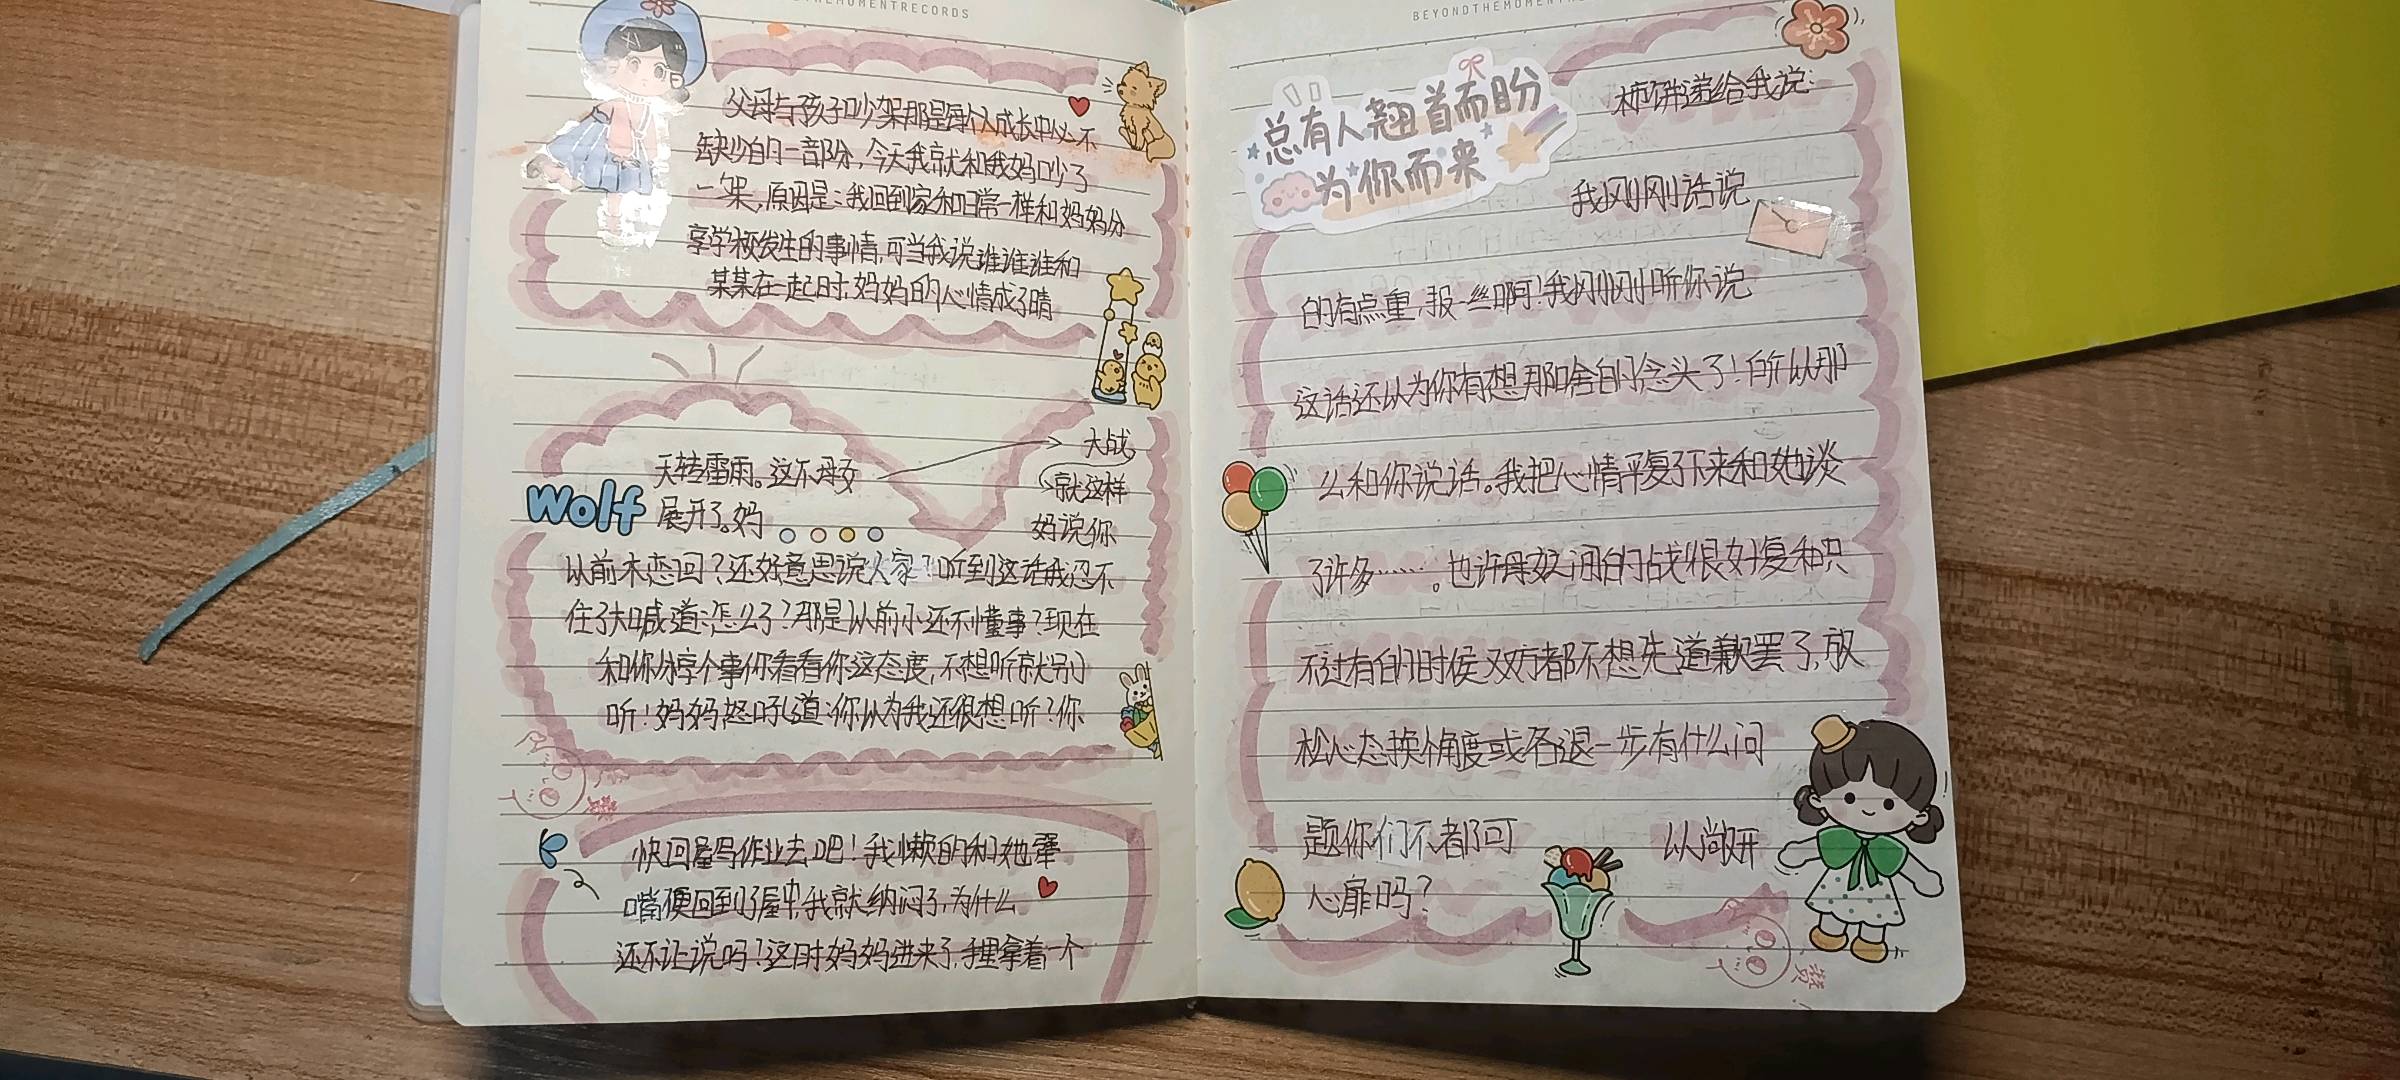 THEMOMENTRECORDS
父母与孩子吵架那是每个人成长中必不
缺少的一部分,今天我就和我妈吵了
一架,原因是:我回到家和日常一样和妈妈分
享学校发生的事情,可当我说谁谁谁和
某某在一起时,妈妈的心情成了晴
天转雷雨。这不母女
大战
就这样
Wolf
展开了。妈
妈说你
从前木恋回?还好意思说人家?听到这话我忍不
住了大喊道:怎么了?那是从前小还不懂事?现在
和你分享个事你看看你这态度,不想听就别
听!妈妈怒吼道:你以为我还很想听?你
快回屋写作业去吧!我懒的和她犟
嘴便回到了屋中,我就纳闷了,为什么
还不让说吗?这时妈妈进来了,手里拿着一个
BEYONDTHEMOMENT
总有人翘首而盼
为你而来
柿饼递给我说:
我刚刚话说
的有点重,报一丝啊!我刚刚听你说
这话还以为你有想那啥的念头了!所以那
么和你说话。我把心情平复了下来和她谈
了许多……。也许母女间的战很好复和只
不过有的时侯双方都不想先道歉罢了,放
松心态换个角度或各退一步有什么问
题你们不都可
以尚开
心扉吗?